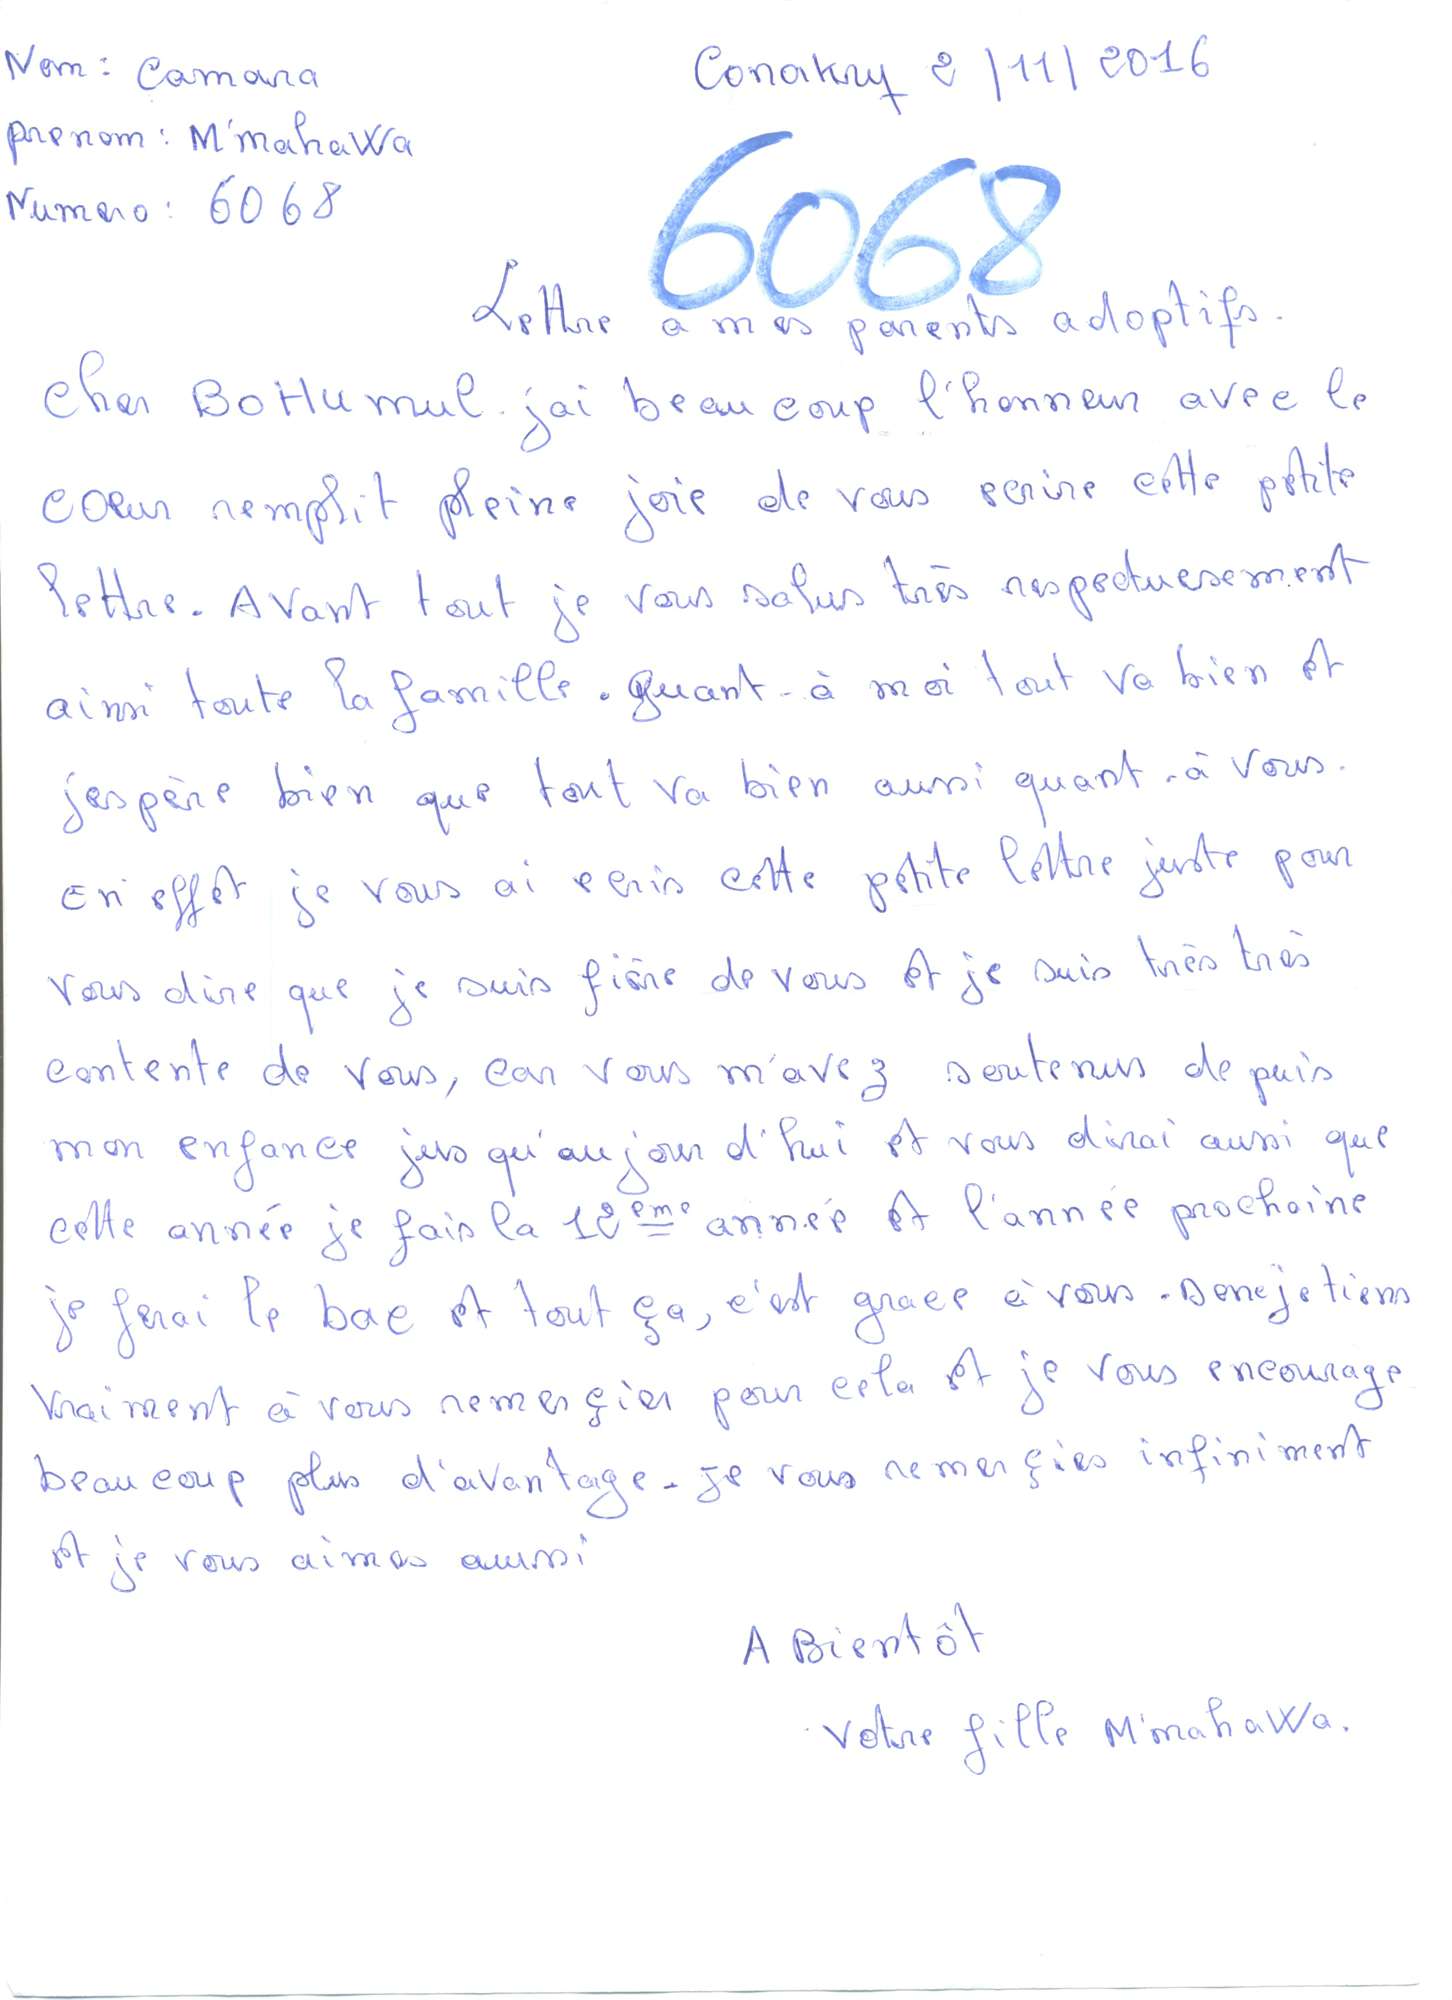 Nom: Camara
Conakry 2/11/2016
prenom: M'mahaWa
Numero: 6068
6068
Lettre a mes parents adoptifs.
Cher BoHumul. jai beaucoup l'honneur avec le
cœur remplit pleine joie de vous ecrire cette petite
lettre. Avant tout je vous salus très respectuesement
ainsi toute la famille. Quant-à moi tout va bien et
jespère bien que tout va bien aussi quant-à vous.
En effet je vous ai ecris cette petite lettre juste pour
vous dire que je suis fière de vous et je suis très très
contente de vous, car vous m'avez soutenus depuis
mon enfance jusqu'aujour d'hui et vous dirai aussi que
cette année je fais la 12ème année et l'année prochaine
je ferai le bac et tout ça, c'est grace à vous. Donc je tiens
vraiment à vous remerçier pour cela et je vous encourage
beaucoup plus d'avantage. je vous remerçies infiniment
et je vous aimes aussi
A Bientôt
Votre fille M'mahaWa.